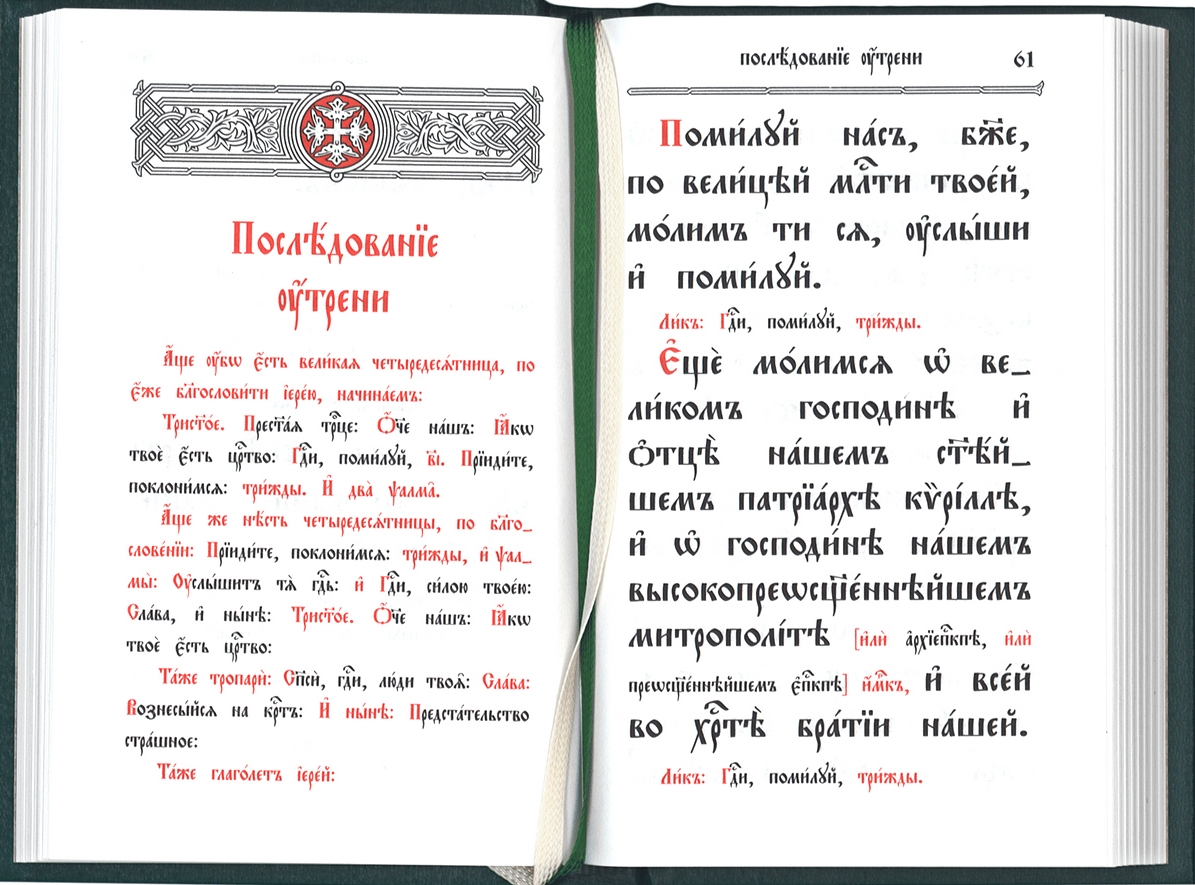 Послѣ́дованїе
ᲂу҆́трени
А҆́ще ᲂу҆́бѡ є҆́сть вели́каѧ четыредесѧ́тница, по
є҆́же блгⷭ҇лови́ти і҆ере́ю, начина́емъ:
Трист҃о́е. Прест҃а́ѧ трⷪ҇це: Ѻ҆́ч҃е на́шъ: Ꙗ҆́кѡ
твоѐ є҆́сть црⷭ҇тво: Гдⷭ҇и, поми́лꙋй, в҃і. Прїиди́те,
поклони́мсѧ: три́жды. И҆ два̀ ѱалма̑.
А҆́ще же нѣ́сть четыредесѧ́тницы, по бл҃го_
слове́нїи: Прїиди́те, поклони́мсѧ: три́жды, и҆ ѱал_
мы̀: Оу҆слы́шитъ тѧ̀ гдⷭ҇ь: и҆ Гдⷭ҇и, си́лою твое́ю:
Сла́ва, и҆ ны́нѣ: Трист҃о́е. Ѻ҆́ч҃е на́шъ: Ꙗ҆́кѡ
твоѐ є҆́сть црⷭ҇тво:
Та́же тропарѝ: Сп҃сѝ, гдⷭ҇и, лю́ди твоѧ̑: Сла́ва:
Вознесы́йсѧ на крⷭ҇тъ: И҆ ны́нѣ: Предста́тельство
стра́шное:
Та́же глаго́летъ і҆ере́й:
послѣ́дованїе ᲂу҆́трени 61
Поми́лꙋй на́съ, бж҃е,
по вели́цѣй млⷭ҇ти твое́й,
мо́лимъ ти сѧ, ᲂу҆слы́ши
и҆ поми́лꙋй.
Ли́къ: Гдⷭ҇и, поми́лꙋй, три́жды.
Є҆щѐ мо́лимсѧ ѡ҆ ве_
ли́комъ господи́нѣ и҆
ѻ҆тцѣ̀ на́шемъ ст҃ѣ́й_
шемъ патрїа́рхѣ кѷрі́ллѣ,
и҆ ѡ҆ господи́нѣ на́шемъ
высокопреѡсщ҃е́ннѣйшемъ
митрополі́тѣ [и҆лѝ а҆рхїепⷭ҇кпѣ, и҆лѝ
преѡсщ҃е́ннѣйшемъ є҆пⷭ҇кпѣ] и҆́мⷬ҇къ, и҆ все́й
во хрⷭ҇тѣ̀ бра́тїи на́шей.
Ли́къ: Гдⷭ҇и, поми́лꙋй, три́жды.